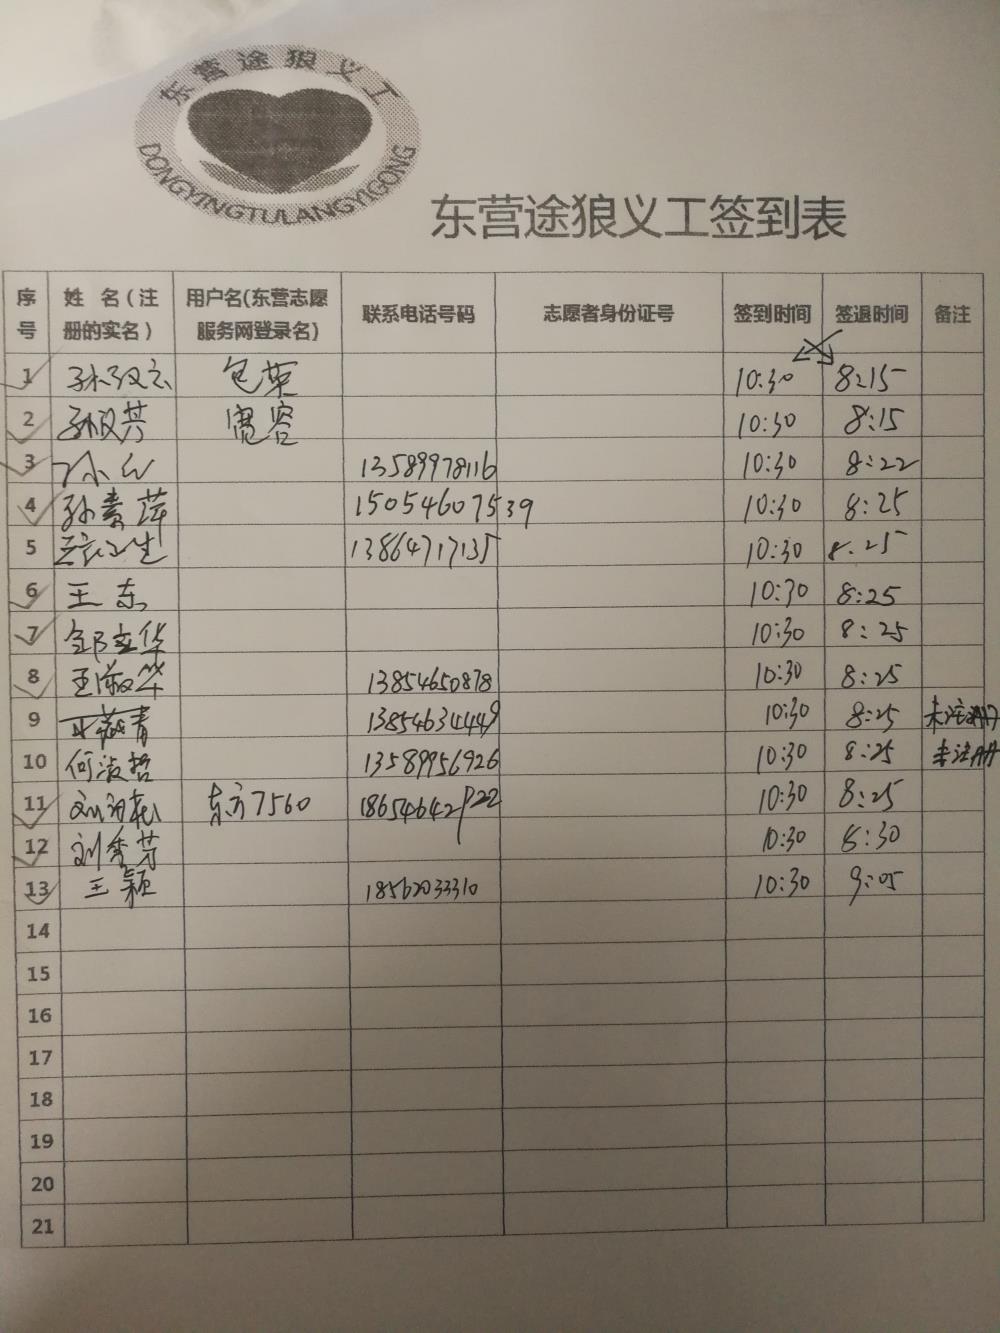 东营途狼义工
DONGYINGTULANGYIGONG
东营途狼义工签到表
序号 姓 名(注册的实名) 用户名(东营志愿服务网登录名) 联系电话号码 志愿者身份证号 签到时间 签退时间 备注
1 包荣 10:30 8:15
2 宽容 10:30 8:15
3 13589978116 10:30 8:22
4 孙素萍 15054607539 10:30 8:25
5 13864717135 10:30 8:25
6 王东 10:30 8:25
7 邹立华 10:30 8:25
8 王淑华 13854650878 10:30 8:25
9 13854634449 10:30 8:25 未注册
10 何波哲 13589956926 10:30 8:25 未注册
11 东方7560 18654642922 10:30 8:25
12 刘秀芳 10:30 8:30
13 王颖 18562033310 10:30 9:05
14
15
16
17
18
19
20
21